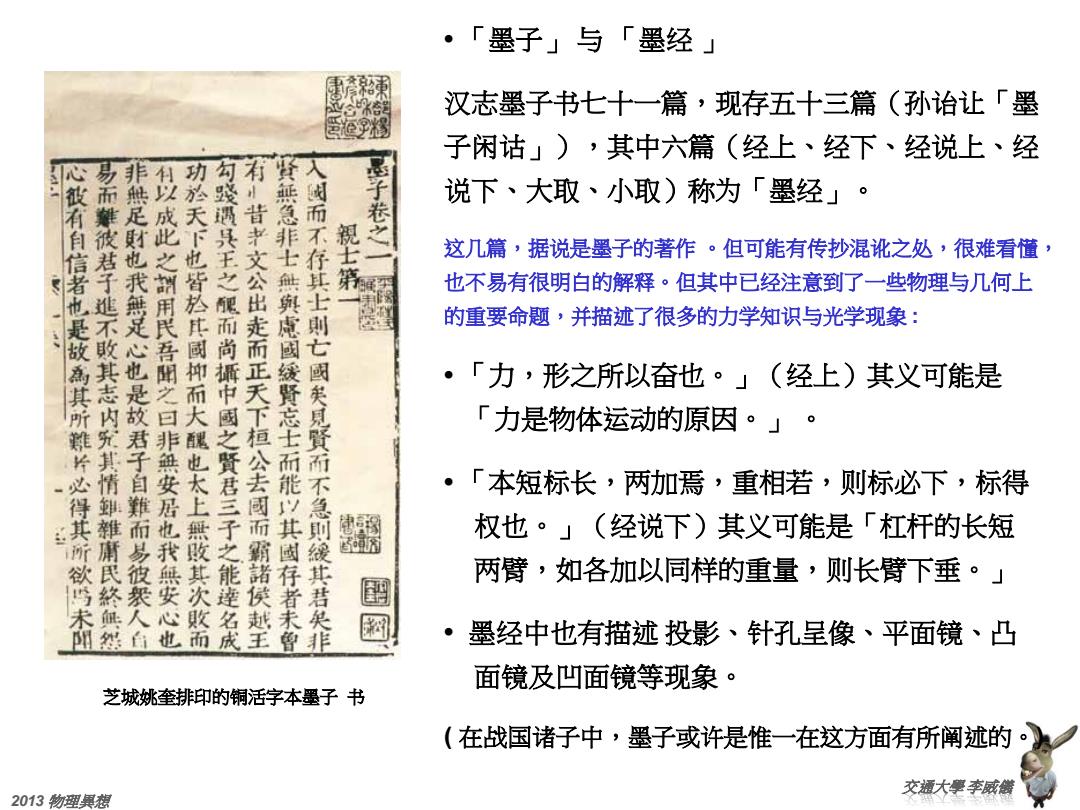 •「墨子」与「墨经 」
汉志墨子书七十一篇，现存五十三篇（孙诒让「墨
子闲诂」），其中六篇（经上、经下、经说上、经
说下、大取、小取）称为「墨经」。
这几篇，据说是墨子的著作 。但可能有传抄混讹之处，很难看懂，
也不易有很明白的解释。但其中已经注意到了一些物理与几何上
的重要命题，并描述了很多的力学知识与光学现象 :
•「力，形之所以奋也。」（经上）其义可能是
「力是物体运动的原因。」 。
•「本短标长，两加焉，重相若，则标必下，标得
权也。」（经说下）其义可能是「杠杆的长短
两臂，如各加以同样的重量，则长臂下垂。」
• 墨经中也有描述 投影、针孔呈像、平面镜、凸
面镜及凹面镜等现象。
( 在战国诸子中，墨子或许是惟一在这方面有所阐述的。
墨子卷之一
親士第一
入國而不存其士則亡國矣見賢而不急則緩其君矣非
賢無急非士無與慮國緩賢忘士而能以其國存者未曾
有也昔者文公出走而正天下桓公去國而霸諸侯越王
勾踐遇吳王之醜而尚攝中國之賢君三子之能達名成
功於天下也皆於其國抑而大醜也太上無敗其次敗而
有以成此之謂用民吾聞之曰非無安居也我無安心也
非無足財也我無足心也是故君子自難而易彼衆人自
易而難彼君子進不敗其志内究其情雖雜庸民終無怨
心彼有自信者也是故為其所難者必得其所欲焉未聞
芝城姚奎排印的铜活字本墨子 书
2013 物理異想
交通大學 李威儀